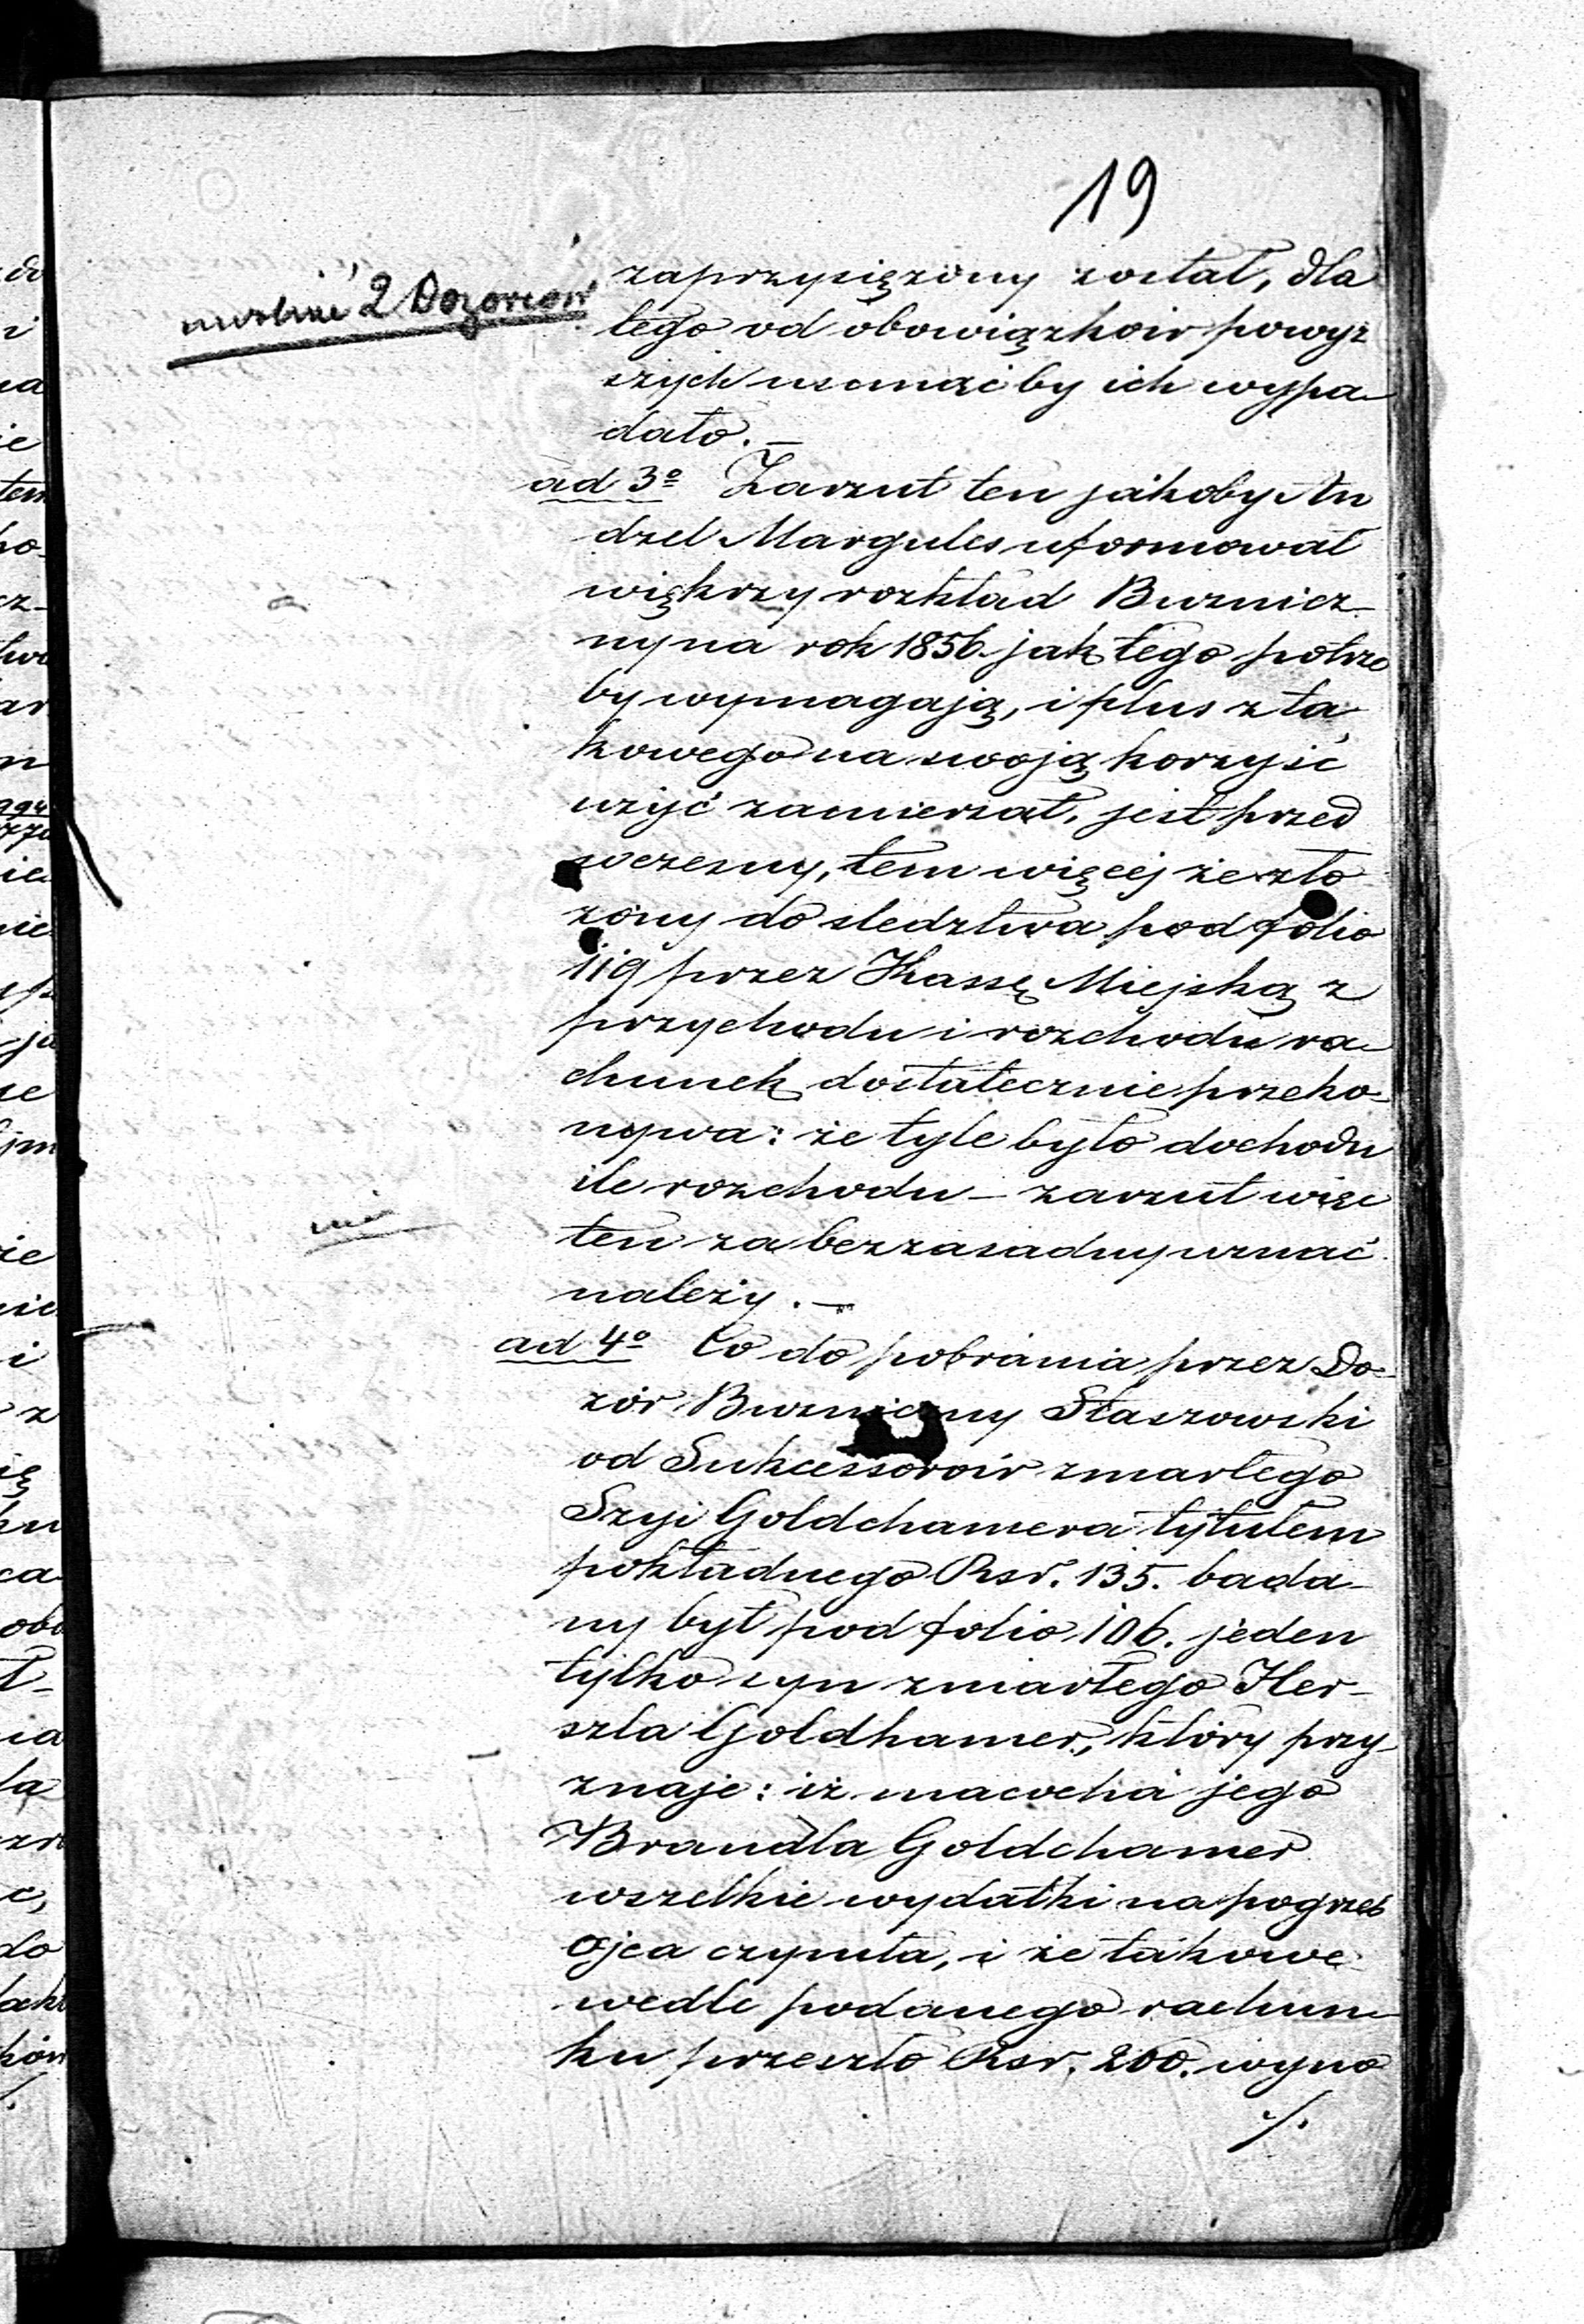 19
uwolnić 2 Dozorców
zaprzysiężony został, dla
tego od obowiązków powyż
szych usunąć by ich wypa
dało. —
ad 3º Zarzut ten jakoby An
dzel Margules uformował
większy rozkład Bużnicz-
ny na rok 1856 jak tego potrze
by wymagają, i plus z ta
kowego na swoją korzyść
użyć zamierzał, jest przed
wczesny, tem więcej że zło
żony do śledztwa pod folio
119 przez Kassę Miejską z
przychodu i rozchodu ra-
chunek dostatecznie przeko-
nywa: że tyle było dochodu
ile rozchodu – zarzut więc
ten za bezzasadny uznać
należy. —
ad 4º Co do pobrania przez Do-
zór Bużniczny Staszowski
od Sukcessorów zmarłego
Szyi Goldchamera tytułem
pokładnego Rsr. 135. bada-
ny był pod folio 106. jeden
tylko syn zmarłego Her-
szla Goldhamer, który przy-
znaje: iż macocha jego
Brandla Goldchamer
wszelkie wydatki na pogrzeb
ojca czyniła, i że takowe
wedle podanego rachun-
ku przeszło Rsr. 200. wyno
./.